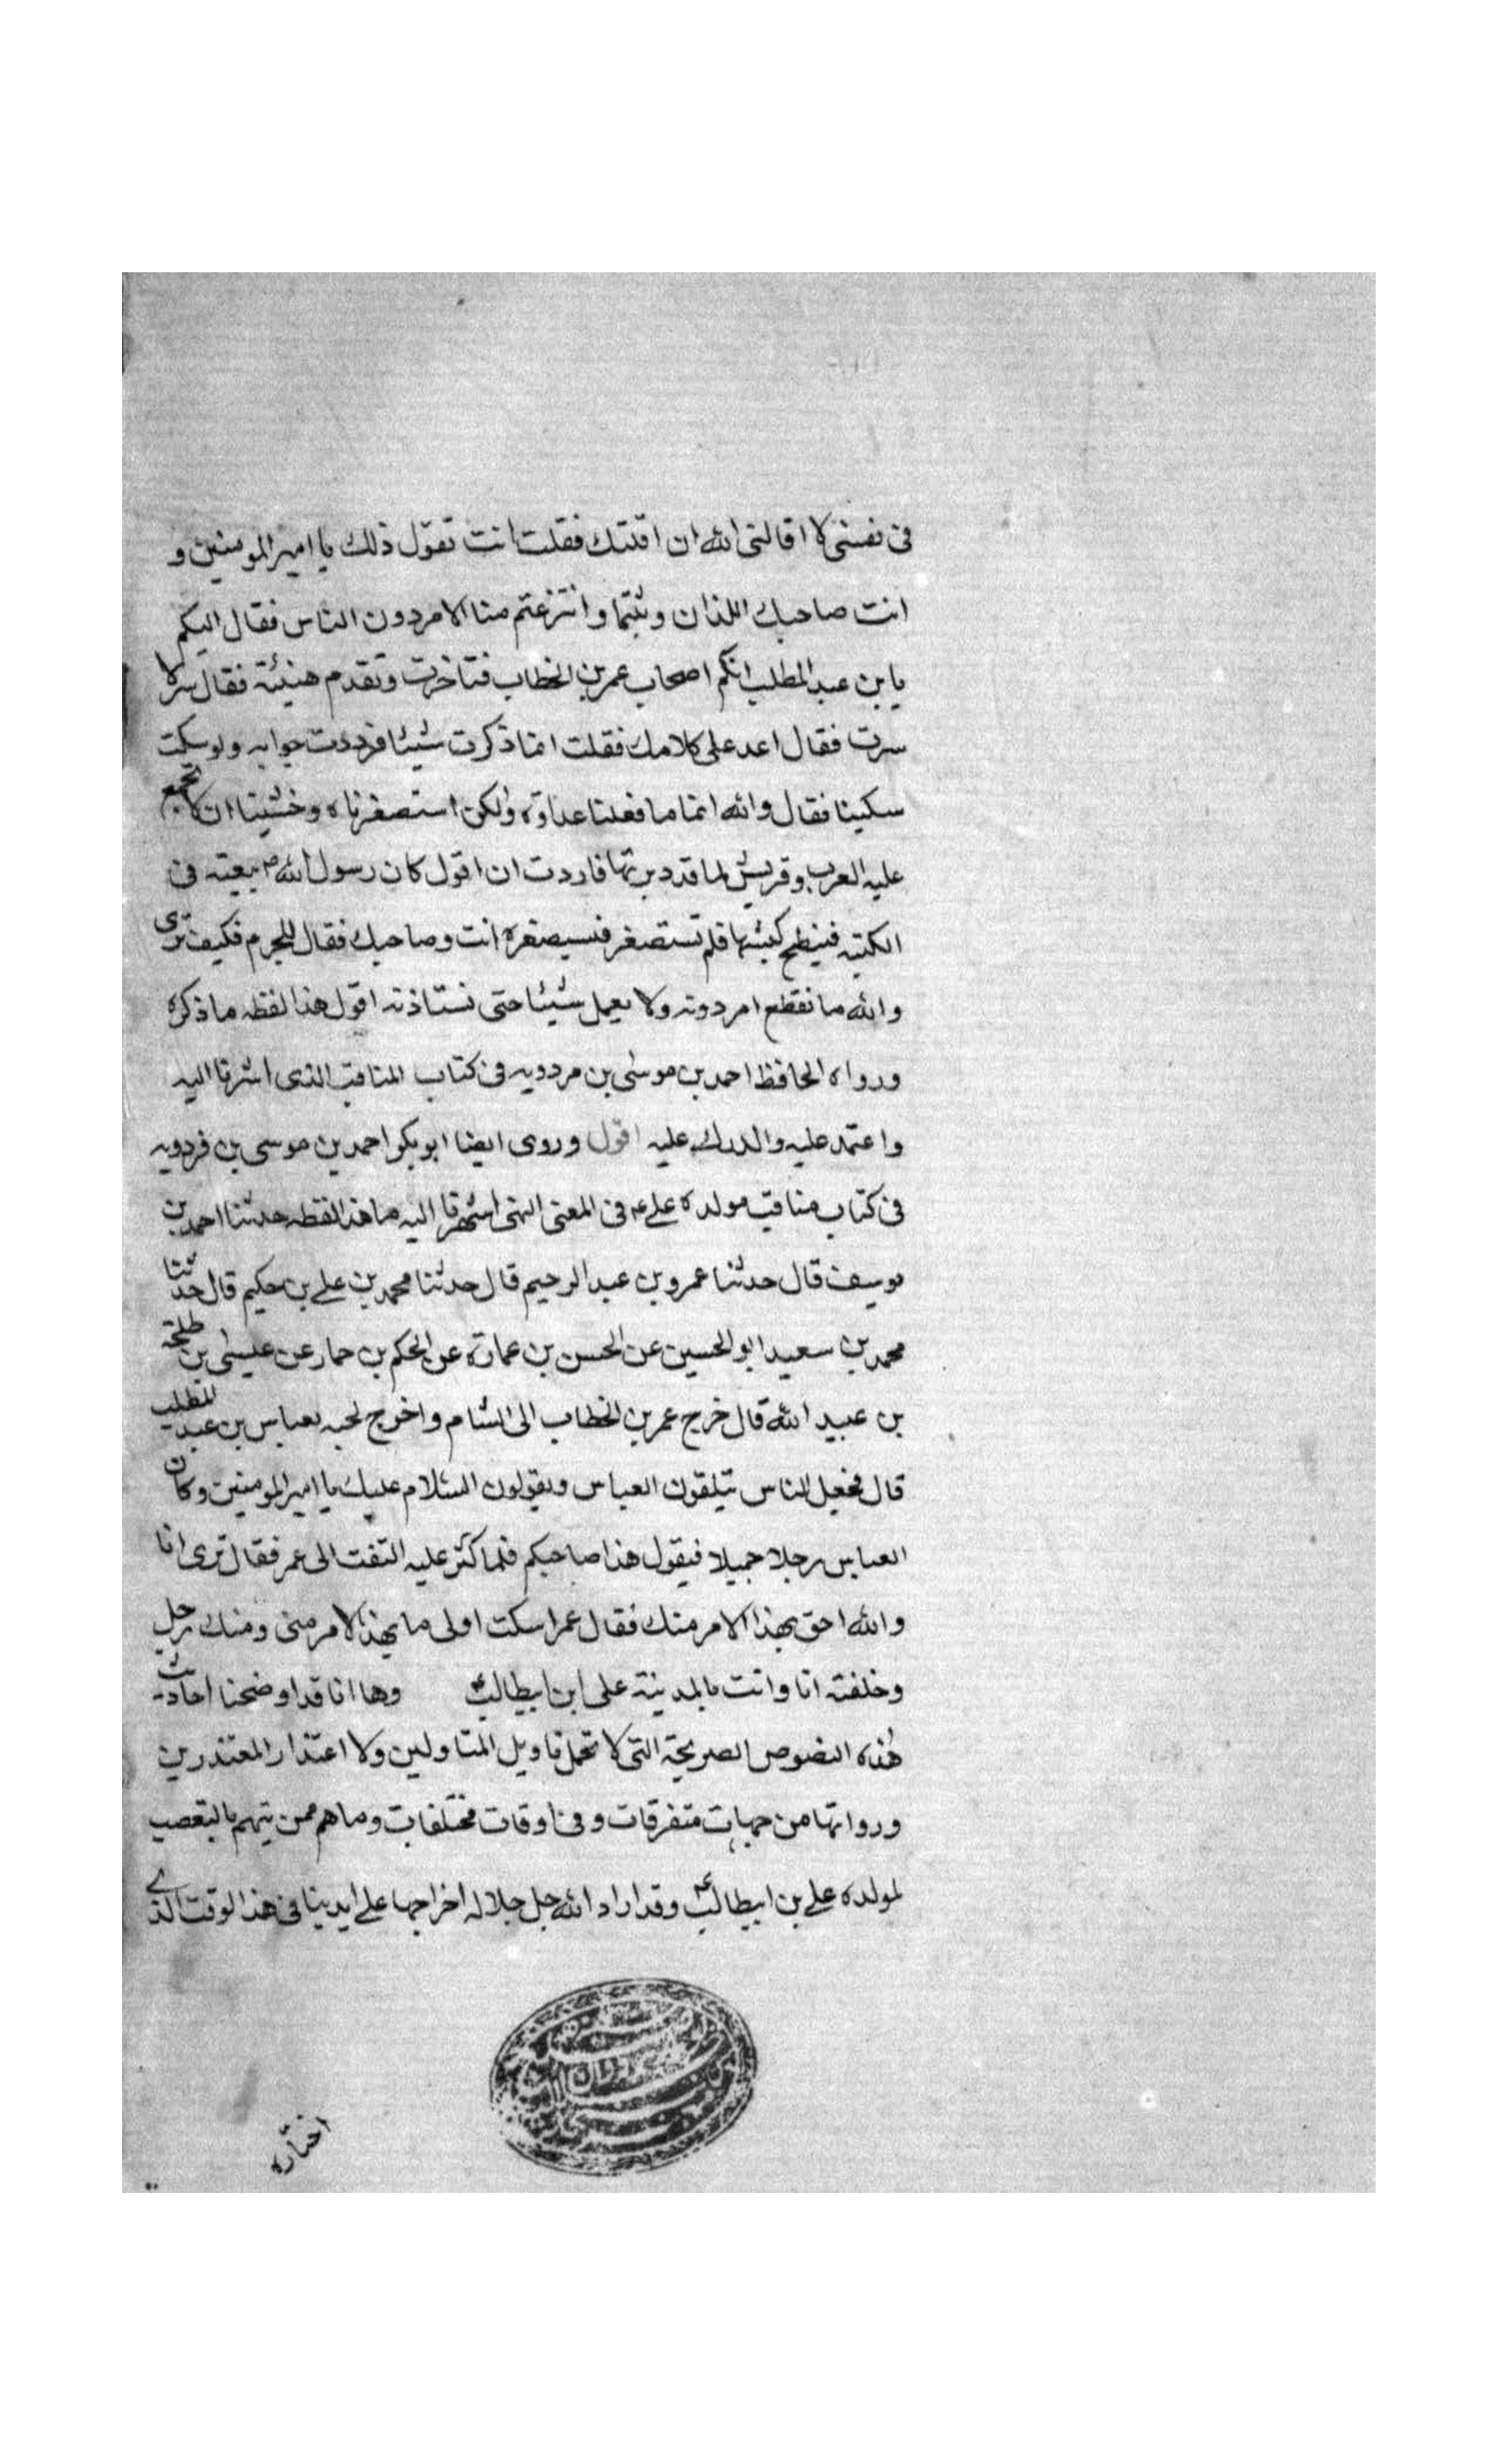 فى نفسى لا اقالنى الله ان اقلتك فقلت انت تقول ذلك يا امير المومنين و
انت صاحبك اللذان وثبتما وانتزعتم منا الامر دون الناس فقال اليكم
يا بن عبد المطلب انكم اصحاب عمر بن الخطاب فتاخرت وتقدم هنيئة فقال سر لا
سرت فقال اعد على كلامك فقلت انما ذكرت شيئا فرددت جوابه ولو سكت
سكينا فقال والله انما ما فعلنا عداوة ولكن استصغرناه وخشينا ان لا تجمع
عليه العرب وقريش لما قد دبرتها فاردت ان اقول كان رسول الله ص يبعثه فى
الكتيبه فينطح كبشها فلم تستصغر فسيصغره انت وصاحبك فقال للجرم فكيف ترى
والله ما نقطع امر دونه ولا يعمل شيئا حتى نستاذنه اقول هذا لفظه ما ذكره
ورواه الحافظ احمد بن موسى بن مردويه فى كتاب المناقب الذى اشرنا اليه
واعتمد عليه والدرك عليه اقول وروى ايضا ابو بكر احمد بن موسى بن فردويه
فى كتاب مناقب مولده على ع فى المعنى الهنى اشرنا اليه ما هذا لفظه حدثنا احمد بن
يوسف قال حدثنا عمرو بن عبد الرحيم قال حدثنا محمد بن على بن حكيم قال حدثنا
محمد بن سعيد ابو الحسين عن الحسن بن عمارة عن الحكم بن حمار عن عيسى بن طلحة
بن عبيد الله قال خرج عمر بن الخطاب الى الشام واخرج لحبه بعباس بن عبد المطلب
قال فجعل الناس يتلقون العباس ويقولون السلام عليك يا امير المومنين وكان
العباس رجلا جميلا فيقول هذا صاحبكم فلما كثر عليه التفت الى عمر فقال ترى انا
والله احق بهذا الامر منك فقال عمر اسكت اولى ما بهذا الامر منى ومنك رجل
وخلفته انا وانت بالمدينة على ابن ابيطالب ع وها انا قد اوضحنا احاديث
هذه النصوص الصريحة التى لا تحمل تاويل المتاولين ولا اعتذار المعتذرين
ورواتها من جهات متفرقات وفى اوقات مختلفات وما هم ممن يتهم بالتعصب
لمولده على بن ابيطالب ع وقد اراد الله جل جلاله اخراجها على ايدينا فى هذا الوقت الذى
اختاره